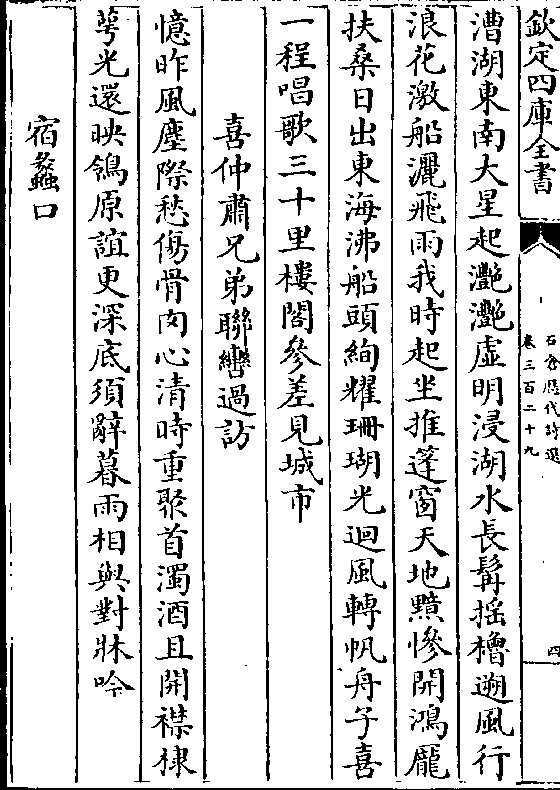 欽定四庫全書
石倉歷代詩選
卷三百二十九
四
漕湖東南大星起灔灔虛明浸湖水長髯搖櫓遡風行
浪花激船灑飛雨我時起坐推蓬窗天地黯慘開鴻厖
扶桑日出東海沸船頭絢耀珊瑚光迴風轉帆舟子喜
一程唱歌三十里樓閣參差見城市
喜仲肅兄弟聯轡過訪
憶昨風塵際愁傷骨肉心清時重聚首濁酒且開襟棣
萼光還映鴒原誼更深底須辭暮雨相與對牀吟
宿蠡口